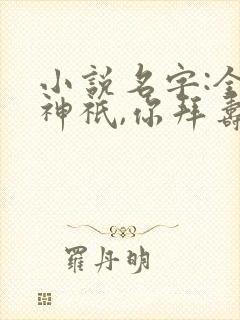 小說名字:全
神祇,你拜壽
羅丹明